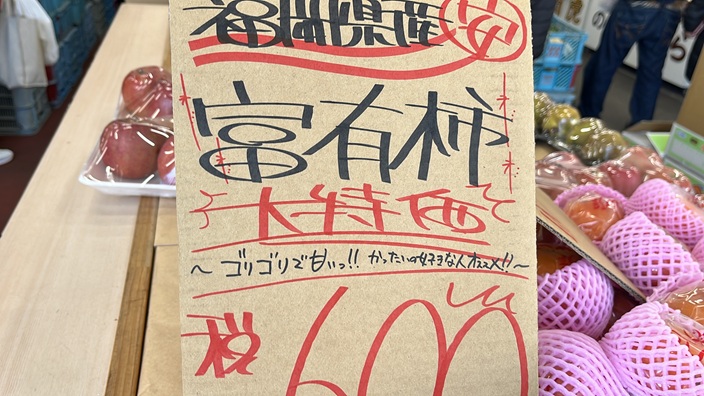 福岡県産 安
富有柿
大特価
～ゴリゴリで甘いっ!! かったいの好きな人オススメ!!～
税 600